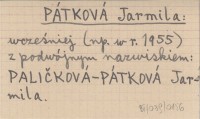 PÁTKOVÁ Jarmila:
wcześniej (np. w r. 1955)
z podwójnym nazwiskiem:
PALIČKOVÁ-PÁTKOVÁ Jar-
mila.